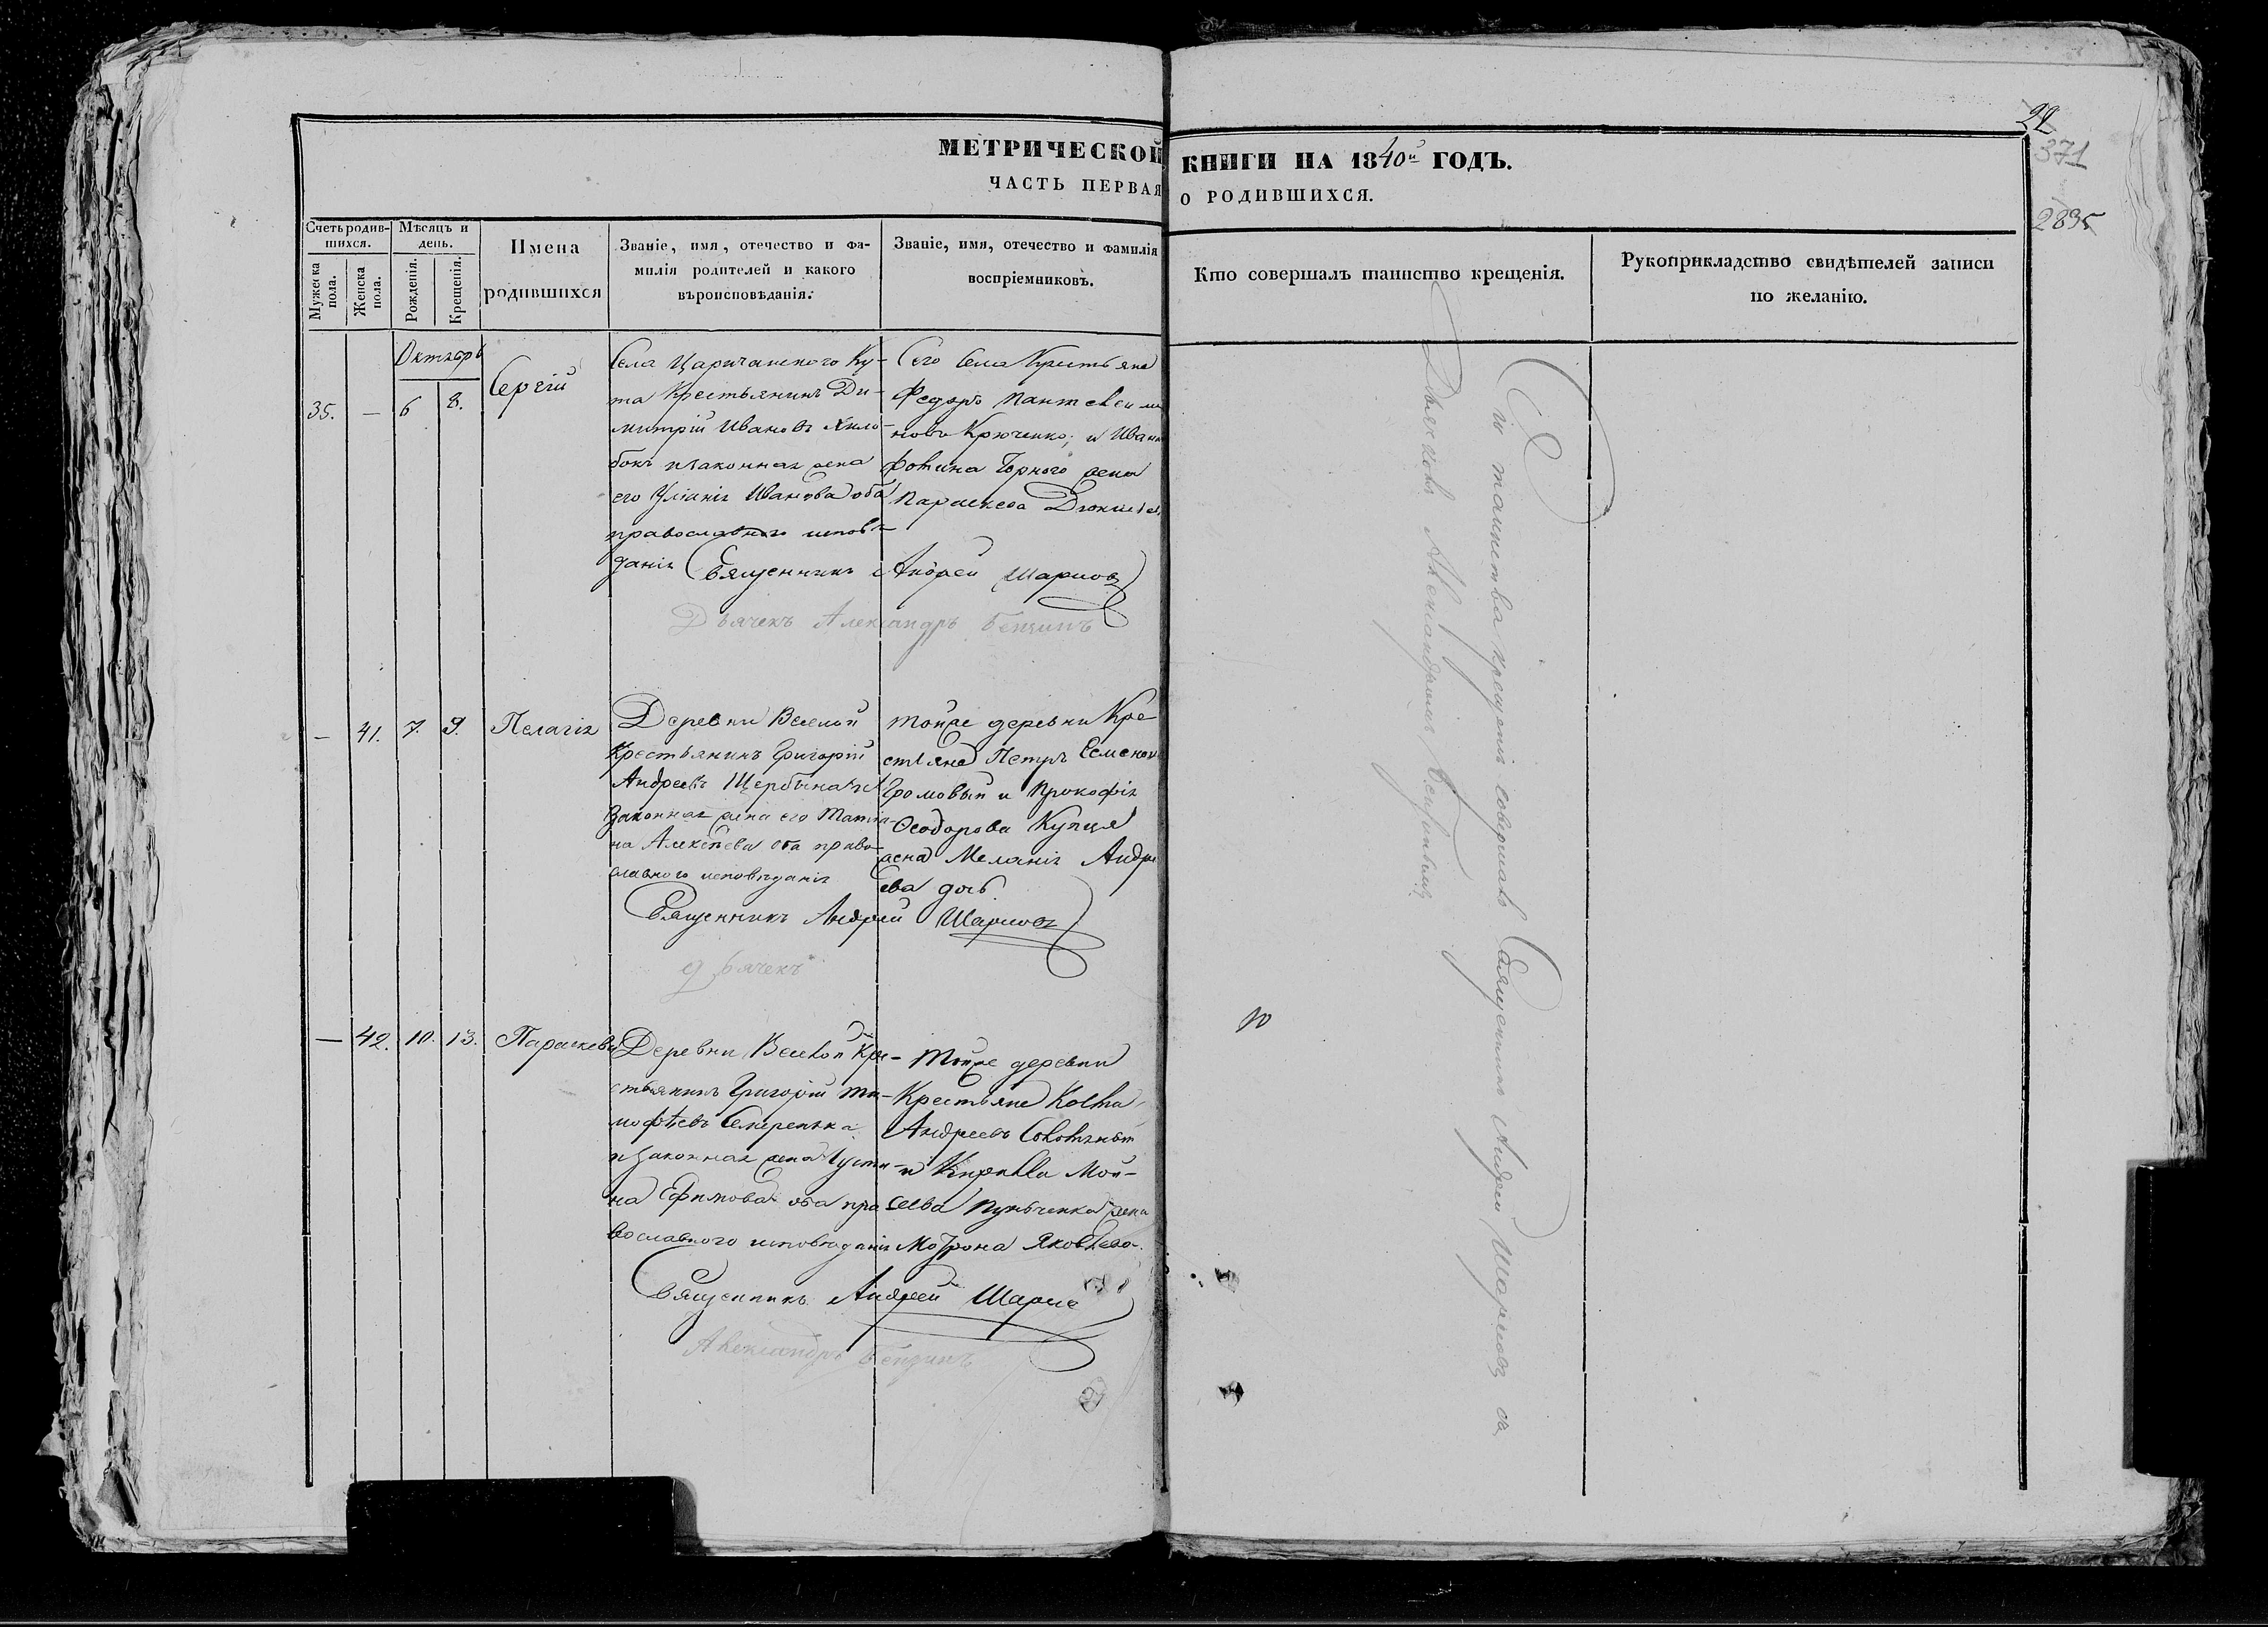 МЕТРИЧЕСКОЙ КНИГИ НА 1840й ГОДЪ.
ЧАСТЬ ПЕРВАЯ О РОДИВШИХСЯ.
22
371
2895
Счетъ родив-шихся.
Мужеска пола.
Женска пола.
Мѣсяцъ и день.
Рожденія.
Крещенія.
Имена родившихся
Званіе, имя, отечество и фа-
милія родителей и какого
вѣроисповѣданія.
Званіе, имя, отечество и фамилія
воспріемниковъ.
Кто совершалъ таинство крещенія.
Рукоприкладство свидѣтелей записи
по желанію.
Октябрь
35. — 6 8. Сергій
Села Царичанского Ку-
та Крестьянинъ Ди-
митрій Ивановъ
законная жена
его Уліанія Иванова оба
православного исповѣ-
данія
Сего села Крестьяне
Федоръ Пантелеимо
новъ Крюченко; и Иван
Фотина Чорного жена
Параскева
Священникъ Андрей Шариов
Дьячекъ Александръ Бензинъ
— 41. 7. 9. Пелагія
Деревни Веселой
Крестьянинъ Григорій
Андреевъ Щербина и
Законная жена его Татіа-
на Алексѣева оба право-
славного исповѣданія
Тойже деревни Кре
стьяне Петръ Семенов
Громовый и Прокофія
Феодорова Купця
жена Меланія Андре
ева дочь
Священникъ Андрей Шариовъ
дьячекъ
— 42. 10. 13. Параскева
Деревни Веселой Кре-
стьянинъ Григорій Ти-
мофѣевъ Семеренька
и Законная жена Іусти-
на Ефимова оба пра
вославного исповѣданія
Тойже деревни
Крестьяне Косма
Андреевъ
и Кирилла Мои-
сеева жена
Мотрона Яковлева
Священникъ Андрей Шарио
Александръ Бензинъ
Сіи таинства крещенія совершалъ Священникъ Андрей Шариовъ съ
Дьячкомъ Александромъ Бензинымъ
10